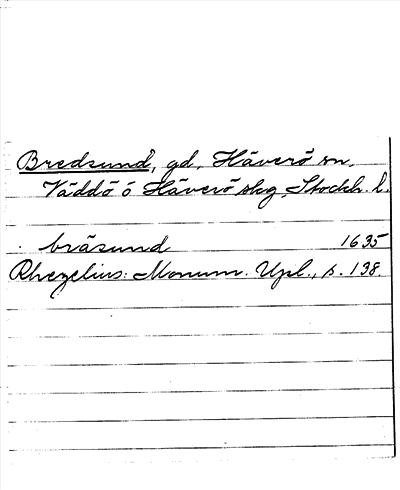 Bredsund, gd, Häverö sn.
Väddö ó Häverö skg, Stockh. l.
bräsund 1635
Rhezelius: Monum. Upl., s. 138.